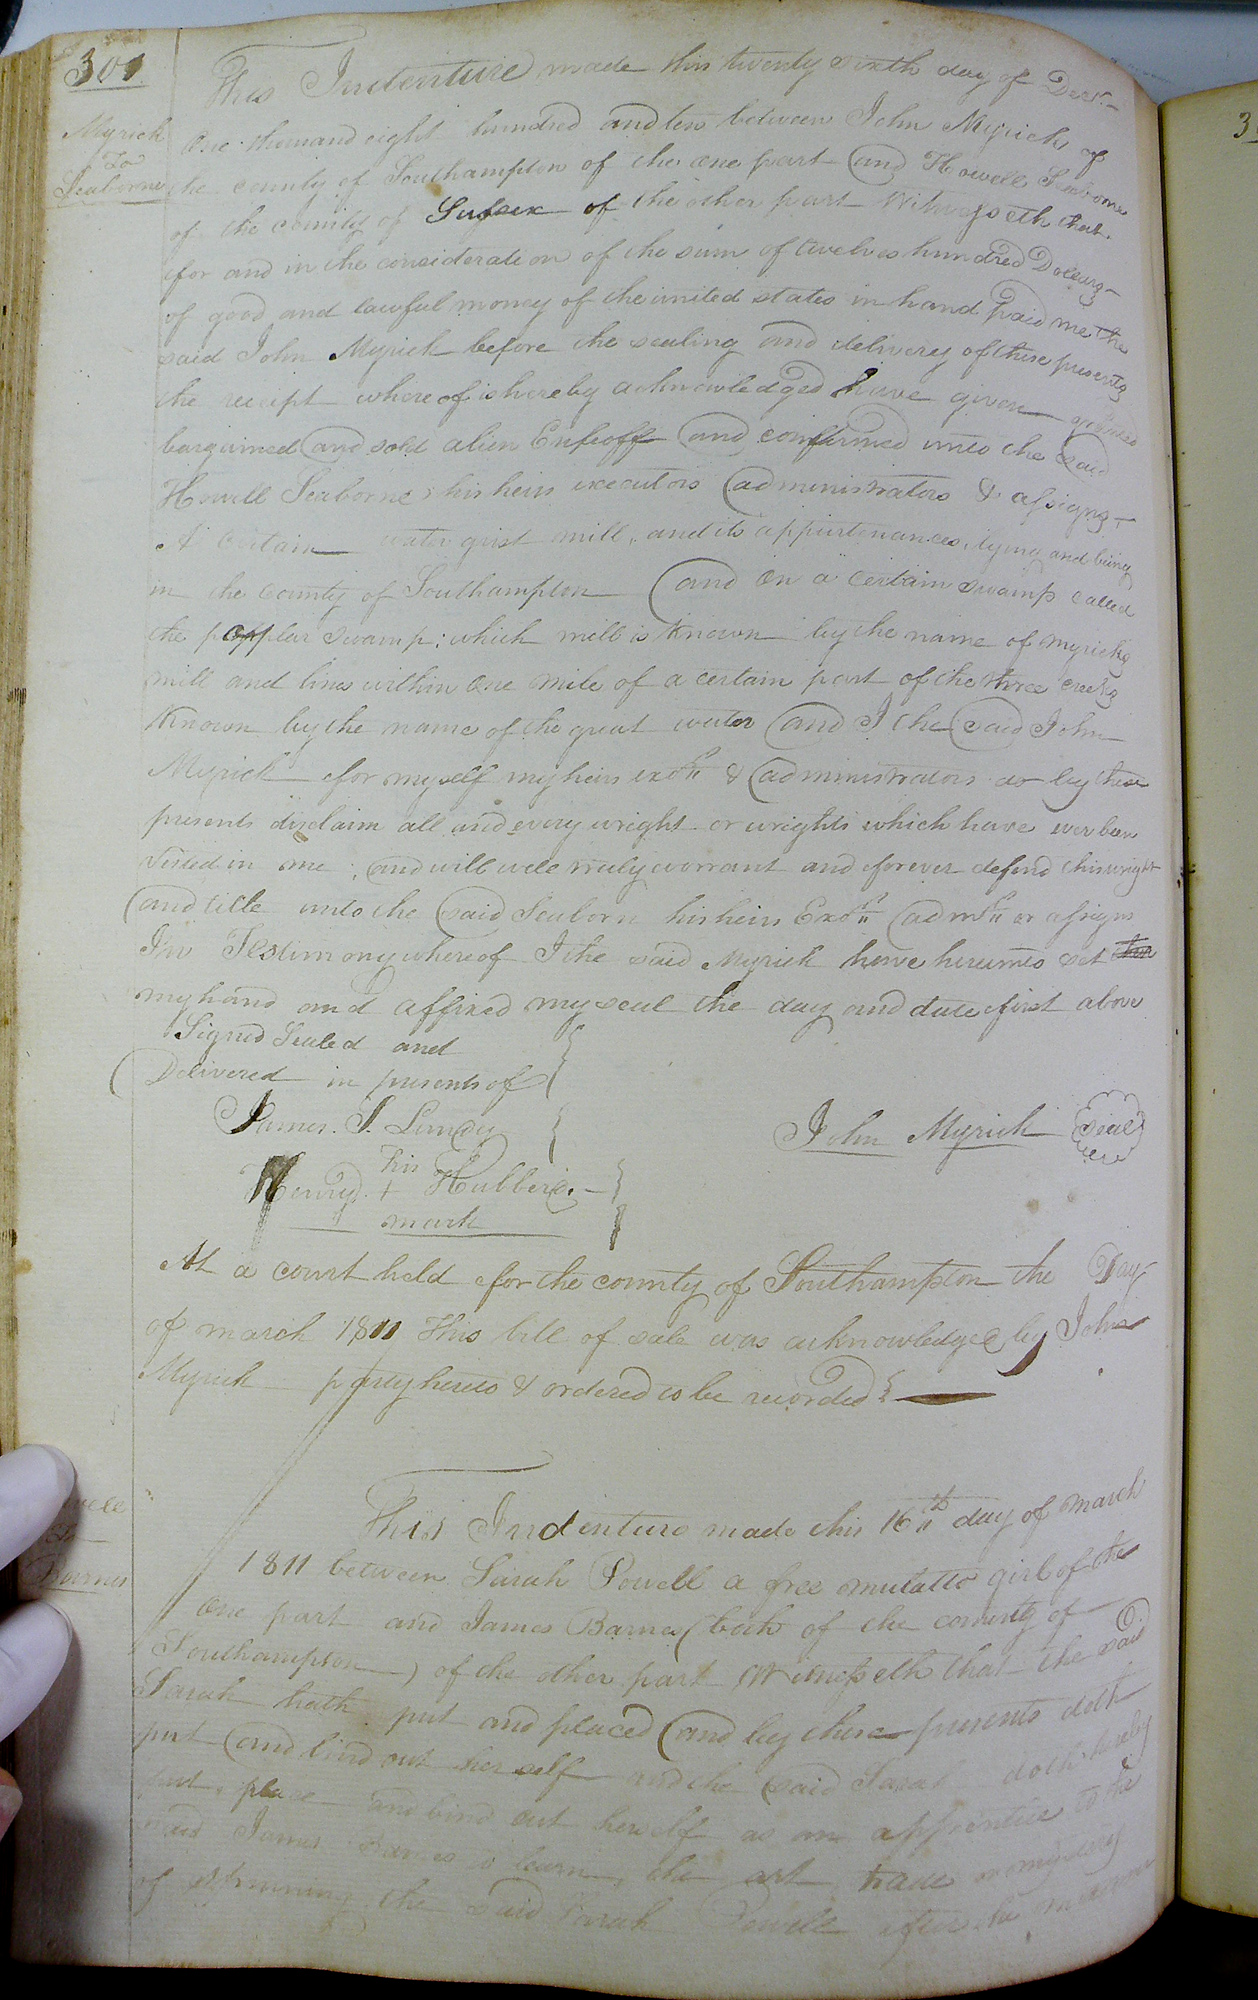 301
Myrick
To
Seaborne
This Indenture made this twenty sixth day of Decr.
One thousand eight hundred and ten between John Myrick of
the county of Southampton of the one part and Howell Seaborne
of the county of Sussex of the other part Witnesseth that
for and in the consideration of the sum of twelves hundred Dollars
of good and lawful money of the united states in hand paid me the
said John Myrick before the sealing and delivery of these presents
the receipt whereof is hereby acknowledged have given granted
bargained and sold alien Enfeoff and confirmed unto the said
Howell Seaborne his heirs executors administrators & assigns
A certain water grist mill, and its appurtenances, lying and being
in the county of Southampton and on a certain swamp called
the popplar swamp; which mill is known by the name of Myricks
mill and lines within one mile of a certain part of the three creeks
known by the name of the great water and I the said John
Myrick for myself my heirs exors & administrators do by these
presents disclaim all and every wright or wrights which have ever been
vested in me; and will well truly warrant and forever defend this wright
and title unto the said Seaborn his heirs Exors admrs or assigns
In Testimony whereof I the said Myrick have hereunto set
my hand and affixed my seal the day and date first above
Signed Sealed and
Delivered in presents of
James. S. Lundy
John Myrick Seal
his
Henry + Hubberd.
mark
At a court held for the county of Southampton the Day
of march 1811 This bill of sale was acknowledged by John
Myrick party hereto & ordered to be recorded
Barnes
This Indenture made this 16th day of march
1811 between Sarah Powell a free mulatto girl of the
one part and James Barnes (both of the county of
Southampton) of the other part Witnesseth that the said
Sarah hath put and placed and by these presents doth
put and bind out her self and the said Sarah doth hereby
put, place and bind out herself as an apprentice to the
said James Barnes to learn, the art trade or mystery
of spinning the said Sarah Powell after the manner